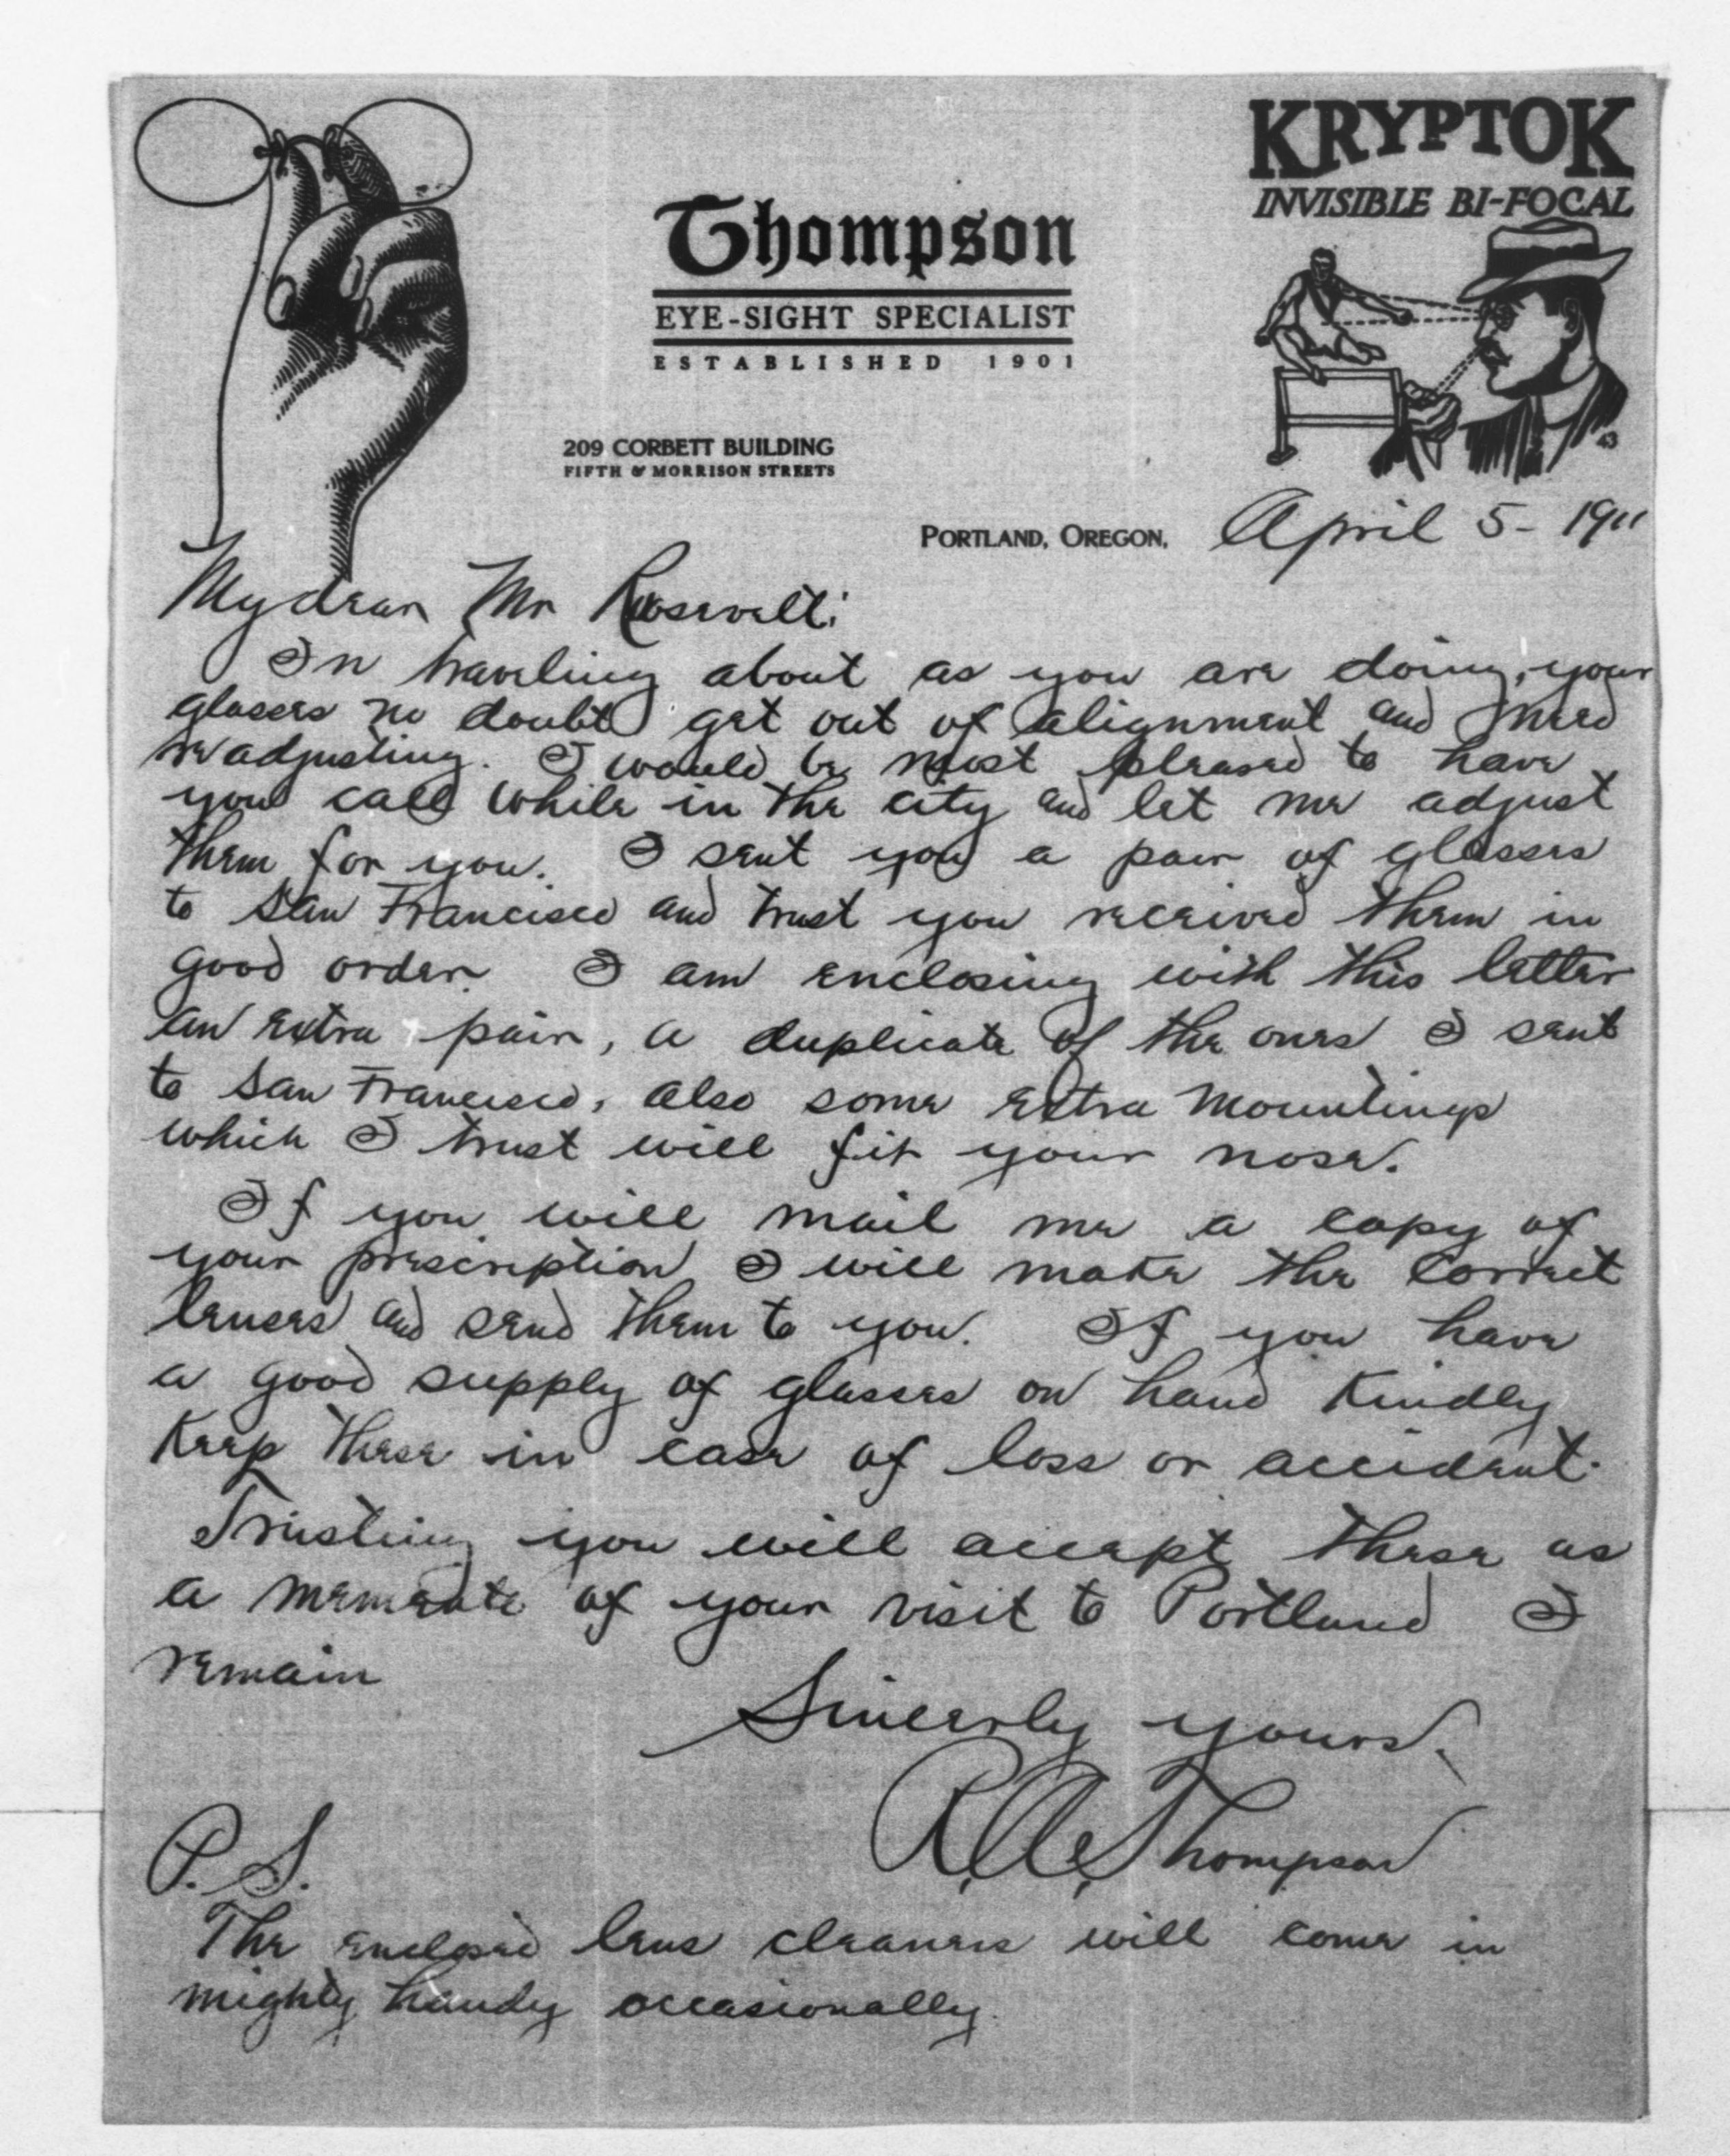 KRYPTOK
INVISIBLE BI-FOCAL
Thompson
EYE-SIGHT SPECIALIST
ESTABLISHED 1901
209 CORBETT BUILDING
FIFTH & MORRISON STREETS
43
PORTLAND, OREGON, April 5- 1911
My dear Mr Roosevelt:
In traveling about as you are doing, your
glasses no doubt get out of alignment and need
readjusting. I would be most pleased to have
you call while in the city and let me adjust
them for you. I sent you a pair of glasses
to San Francisco and trust you received them in
good order. I am enclosing with this letter
an extra pair, a duplicate of the ones I sent
to San Francisco, also some extra mountings
which I trust will fit your nose.
If you will mail me a copy of
your prescription I will make the correct
lenses and send them to you. If you have
a good supply of glasses on hand kindly
keep these in case of loss or accident.
Trusting you will accept these as
a memento of your visit to Portland I
remain
Sincerely yours.
Thompson
P.S.
The enclosed lens cleaners will come in
mighty handy occasionally.